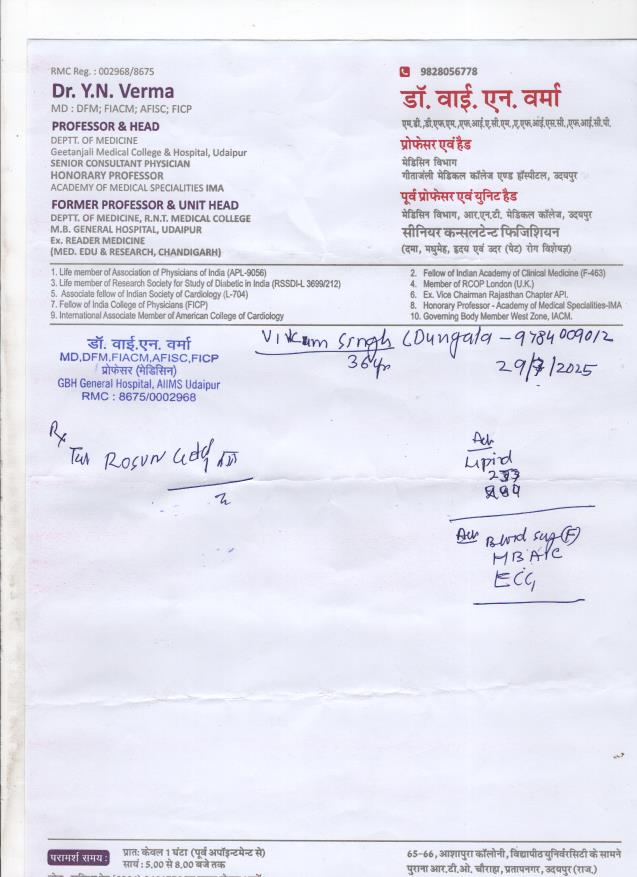 RMC Reg. : 002968/8675
Dr. Y.N. Verma
MD : DFM; FIACM; AFISC; FICP
PROFESSOR & HEAD
DEPTT. OF MEDICINE
Geetanjali Medical College & Hospital, Udaipur
SENIOR CONSULTANT PHYSICIAN
HONORARY PROFESSOR
ACADEMY OF MEDICAL SPECIALITIES IMA
FORMER PROFESSOR & UNIT HEAD
DEPTT. OF MEDICINE, R.N.T. MEDICAL COLLEGE
M.B. GENERAL HOSPITAL, UDAIPUR
Ex. READER MEDICINE
(MED. EDU & RESEARCH, CHANDIGARH)
9828056778
डॉ. वाई. एन. वर्मा
एम.डी.,डी.एफ.एम.,एफ.आई.ए.सी.एम.,ए.एफ.आई.एस.सी.,एफ.आई.सी.पी.
प्रोफेसर एवं हैड
मेडिसिन विभाग
गीतांजली मेडिकल कॉलेज एण्ड हॉस्पीटल, उदयपुर
पूर्व प्रोफेसर एवं युनिट हैड
मेडिसिन विभाग, आर.एन.टी. मेडिकल कॉलेज, उदयपुर
सीनियर कन्सलटेन्ट फिजिशियन
(दमा, मधुमेह, हृदय एवं उदर (पेट) रोग विशेषज्ञ)
1. Life member of Association of Physicians of India (APL-9056)
3. Life member of Research Society for Study of Diabetic in India (RSSDI-L 3699/212)
5. Associate fellow of Indian Society of Cardiology (L-704)
7. Fellow of India College of Physicians (FICP)
9. International Associate Member of American College of Cardiology
2. Fellow of Indian Academy of Clinical Medicine (F-463)
4. Member of RCOP London (U.K.)
6. Ex. Vice Chairman Rajasthan Chapter API.
8. Honorary Professor - Academy of Medical Specialities-IMA
10. Governing Body Member West Zone, IACM.
डॉ. वाई.एन. वर्मा
MD,DFM,FIACM,AFISC,FICP
प्रोफेसर (मेडिसिन)
GBH General Hospital, AIIMS Udaipur
RMC : 8675/0002968
Vikram Singh (Dungala - 9784009012
36yr
29/7/2025
Rx
Rosuv
Adv
Lipid
Adv Blood sug (F)
HBA1C
ECG
परामर्श समय :
प्रात: केवल 1 घंटा (पूर्व अपॉइन्टमेन्ट से)
सायं : 5.00 से 8.00 बजे तक
65-66, आशापुरा कॉलोनी, विद्यापीठ युनिवरसिटी के सामने
पुराना आर.टी.ओ. चौराहा, प्रतापनगर, उदयपुर (राज.)